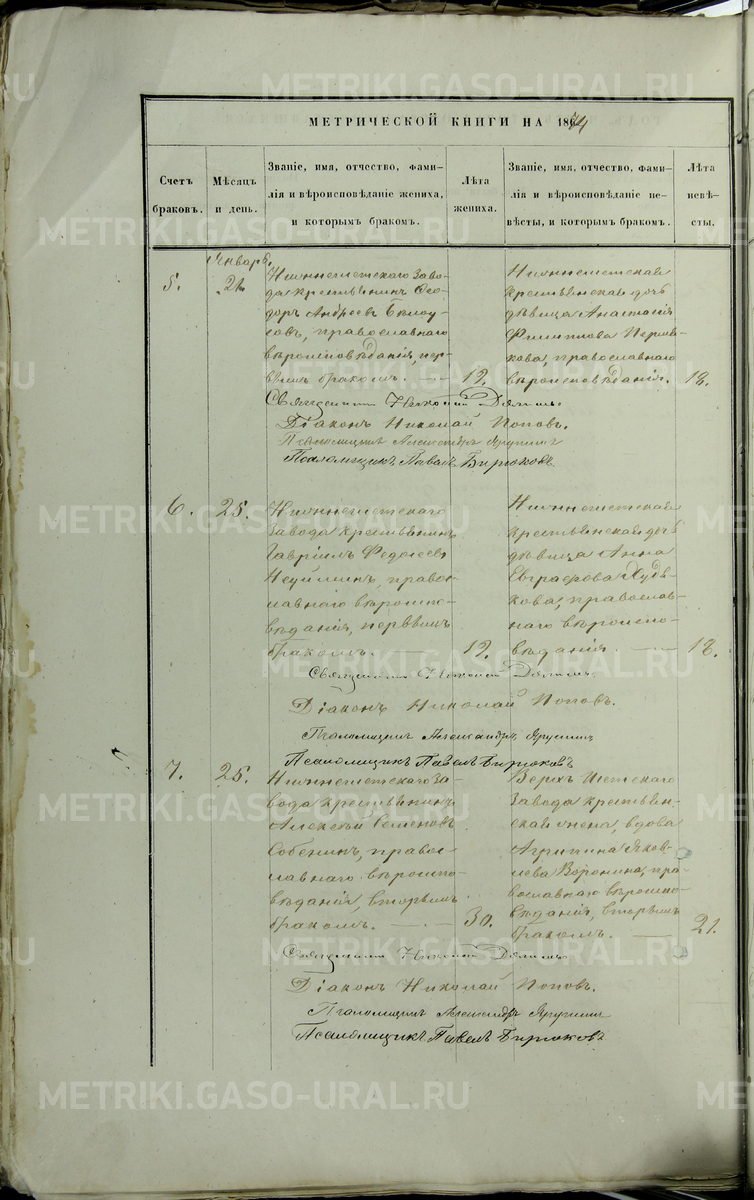 МЕТРИЧЕСКОЙ КНИГИ НА 1874
Счетъ браковъ.
Мѣсяцъ и день.
Званіе, имя, отчество, фами-
лія и вѣроисповѣданіе жениха,
и которымъ бракомъ.
Лѣта жениха.
Званіе, имя, отчество, фами-
лія и вѣроисповѣданіе не-
вѣсты, и которымъ бракомъ.
Лѣта невѣ-
сты.
Январь.
5.
21.
Нижнеисетскаго Заво-
да крестьянинъ Ѳео-
доръ Андреевъ Бѣлоу-
совъ, православнаго
вѣроисповѣданія, пер-
вымъ бракомъ.
19.
Нижнеисетская
крестьянская дочь
дѣвица Анастасія
Филиппова
православнаго
вѣроисповѣданія.
18.
Священникъ Николай
Діаконъ Николай Поповъ.
Псаломщикъ Александръ Ярушинъ
Псаломщикъ Павелъ Бирюковъ
6.
25.
Нижнеисетскаго
Завода крестьянинъ
Гавріилъ Федосеевъ
Неуйминъ, право-
славнаго вѣроиспо-
вѣданія, первымъ
бракомъ.
19.
Нижнеисетская
крестьянская дочь
дѣвица Анна
Евграфова Худя-
кова, православ-
наго вѣроиспо-
вѣданія.
18.
Священникъ Николай
Діаконъ Николай Поповъ.
Псаломщикъ Александръ Ярушинъ
Псаломщикъ Павелъ Бирюковъ
7.
25.
Нижнеисетскаго За-
вода крестьянинъ
Алексѣй Семеновъ
Собенинъ, право-
славнаго вѣроиспо-
вѣданія, вторымъ
бракомъ.
30.
Верхъ Исетскаго
Завода крестьян-
ская жена, вдова
Агрипина Яков-
лева Воронина, пра-
вославнаго вѣроиспо-
вѣданія, вторымъ
бракомъ.
21.
Священникъ Николай
Діаконъ Николай Поповъ.
Псаломщикъ Александръ Ярушинъ
Псаломщикъ Павелъ Бирюковъ
METRIKI.GASO-URAL.RU